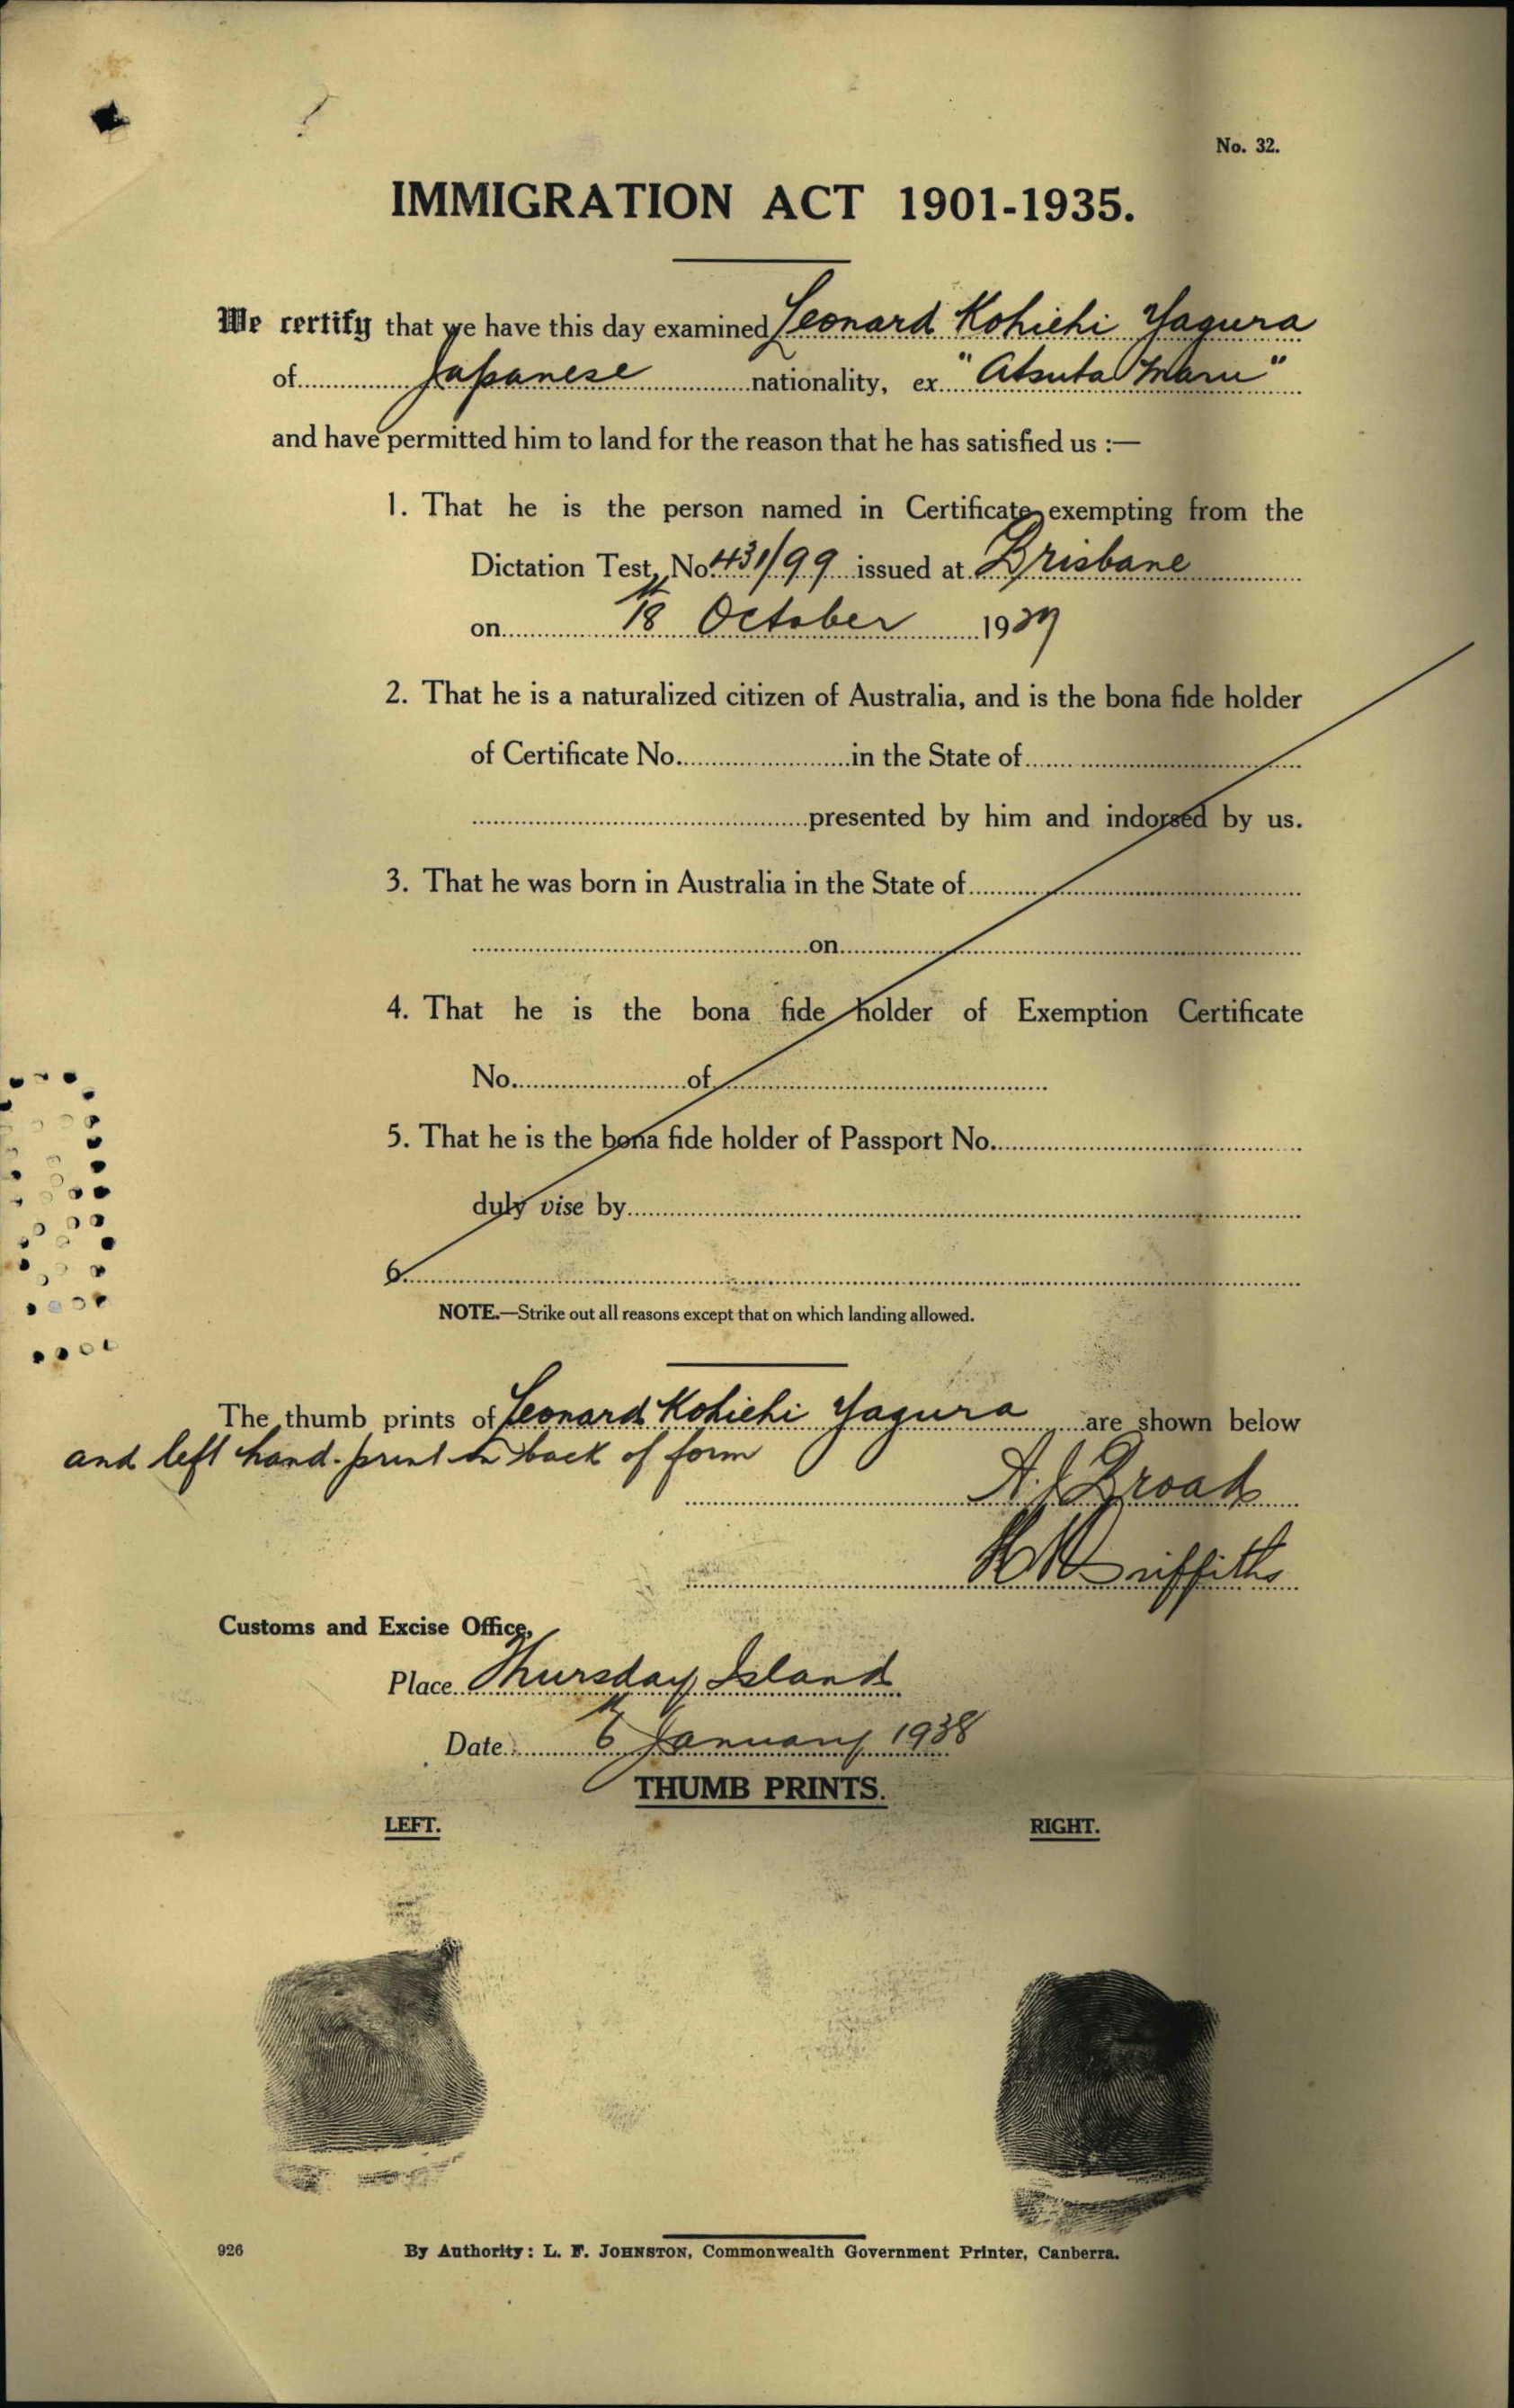 No. 32.
IMMIGRATION ACT 1901-1935.
We certify that we have this day examined Leonard Kohichi Yagura
of Japanese nationality, ex "Atsuta Maru"
and have permitted him to land for the reason that he has satisfied us :—
1. That he is the person named in Certificate exempting from the
Dictation Test, No. 431/99 issued at Brisbane
on 18th October 1937
2. That he is a naturalized citizen of Australia, and is the bona fide holder
of Certificate No. in the State of
presented by him and indorsed by us.
3. That he was born in Australia in the State of
on
4. That he is the bona fide holder of Exemption Certificate
No. of
5. That he is the bona fide holder of Passport No.
duly vise by
6.
NOTE.—Strike out all reasons except that on which landing allowed.
The thumb prints of Leonard Kohichi Yagura are shown below
and left hand-print on back of form
Griffiths
Customs and Excise Office,
Place Thursday Island
Date 6th January 1938
THUMB PRINTS.
LEFT. RIGHT.
926 By Authority: L. F. JOHNSTON, Commonwealth Government Printer, Canberra.